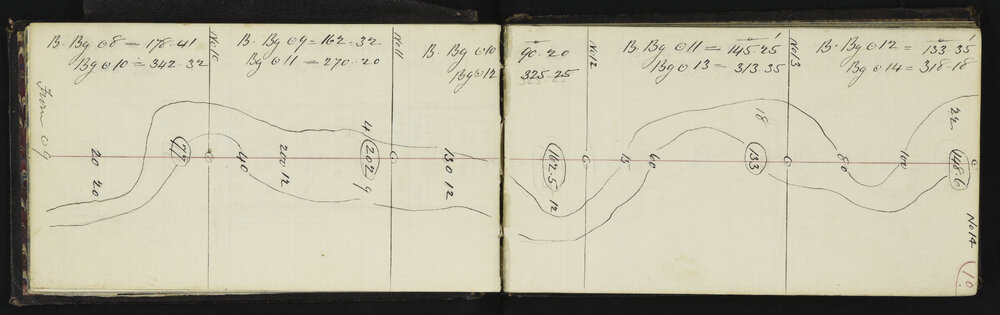 B. Bg ⊙8 = 178.41
Bg ⊙10 = 342.32
No 10
B. Bg ⊙9 = 162.32
Bg ⊙11 = 270.20
No 11
B. Bg ⊙10
Bg ⊙12
90.20
325.25
No 12
B. Bg ⊙11 = 145°25'
Bg ⊙13 = 313.35
No 13
B. Bg ⊙12 = 133°35'
Bg ⊙14 = 318.18
From ⊙9
20 20
77
40
200 12
4
202
9
130 12
162.5
12
15
60
18
133
80
100
22
148.6
No 14
10